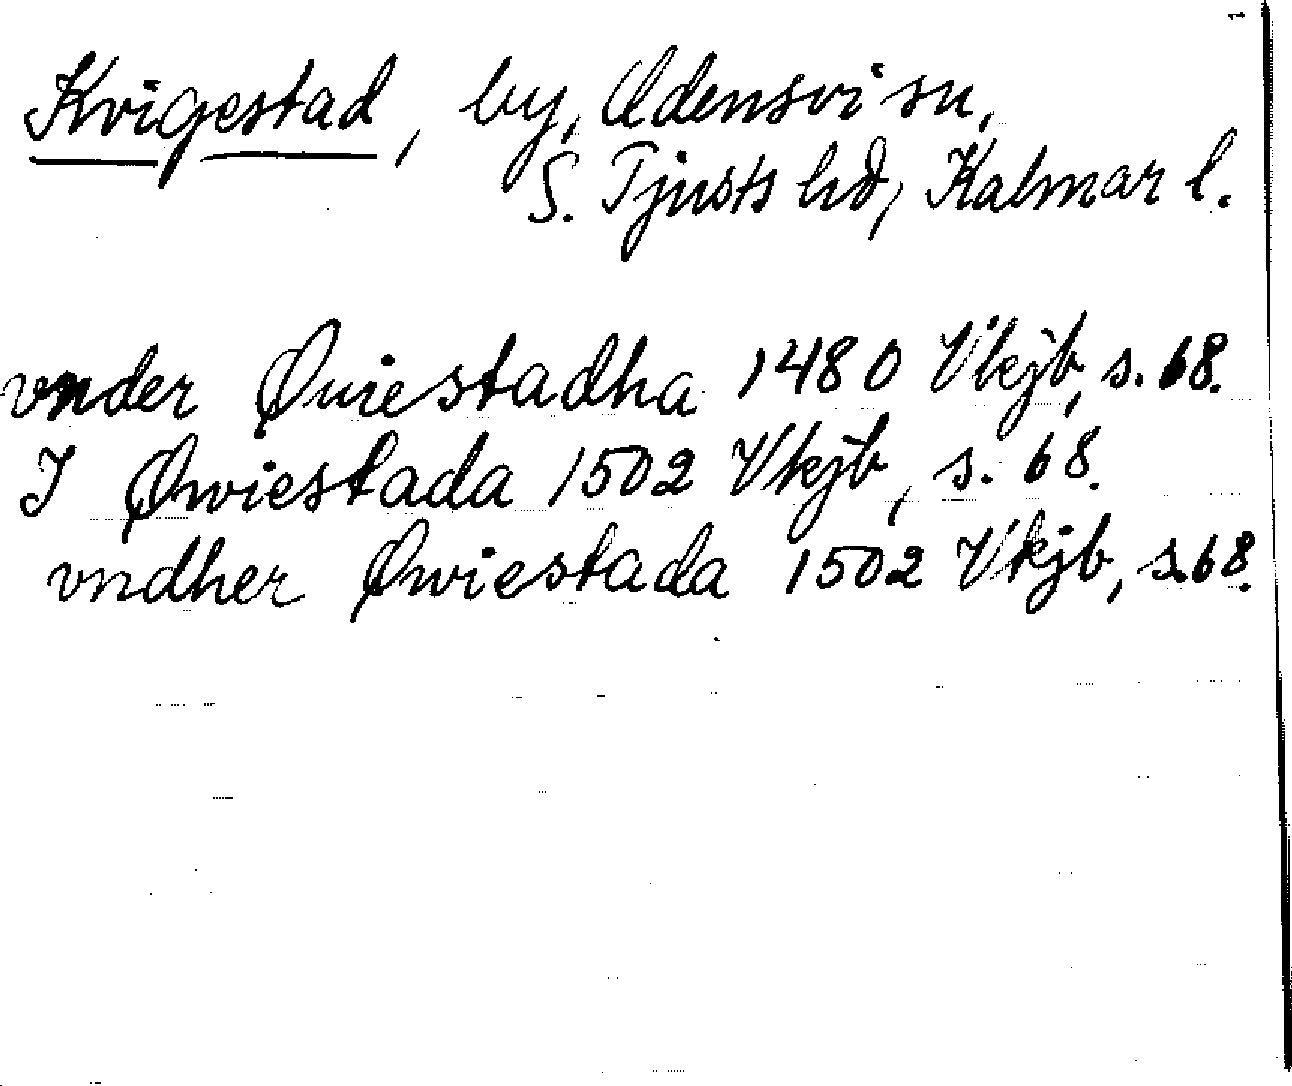 1
Kvigestad, by, Odensvi sn,
S. Tjusts hd, Kalmar l.
vnder Qwiestadha 1480 Vkjb, s. 68.
I Qwiestada 1502 Vkjb, s. 68.
vndher Qwiestada 1502 Vkjb, s. 68.